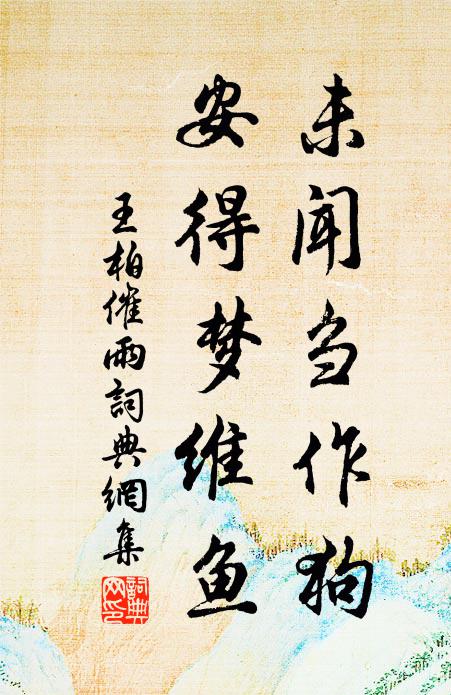 未闻刍作狗
安得梦维鱼
王柏催雨詞典網集
詞典網印